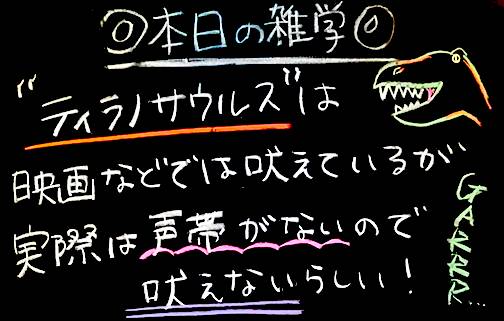 ◎本日の雑学◎
"ティラノサウルス"は
映画などでは吠えているが
実際は声帯がないので
吠えないらしい!
GARRR...